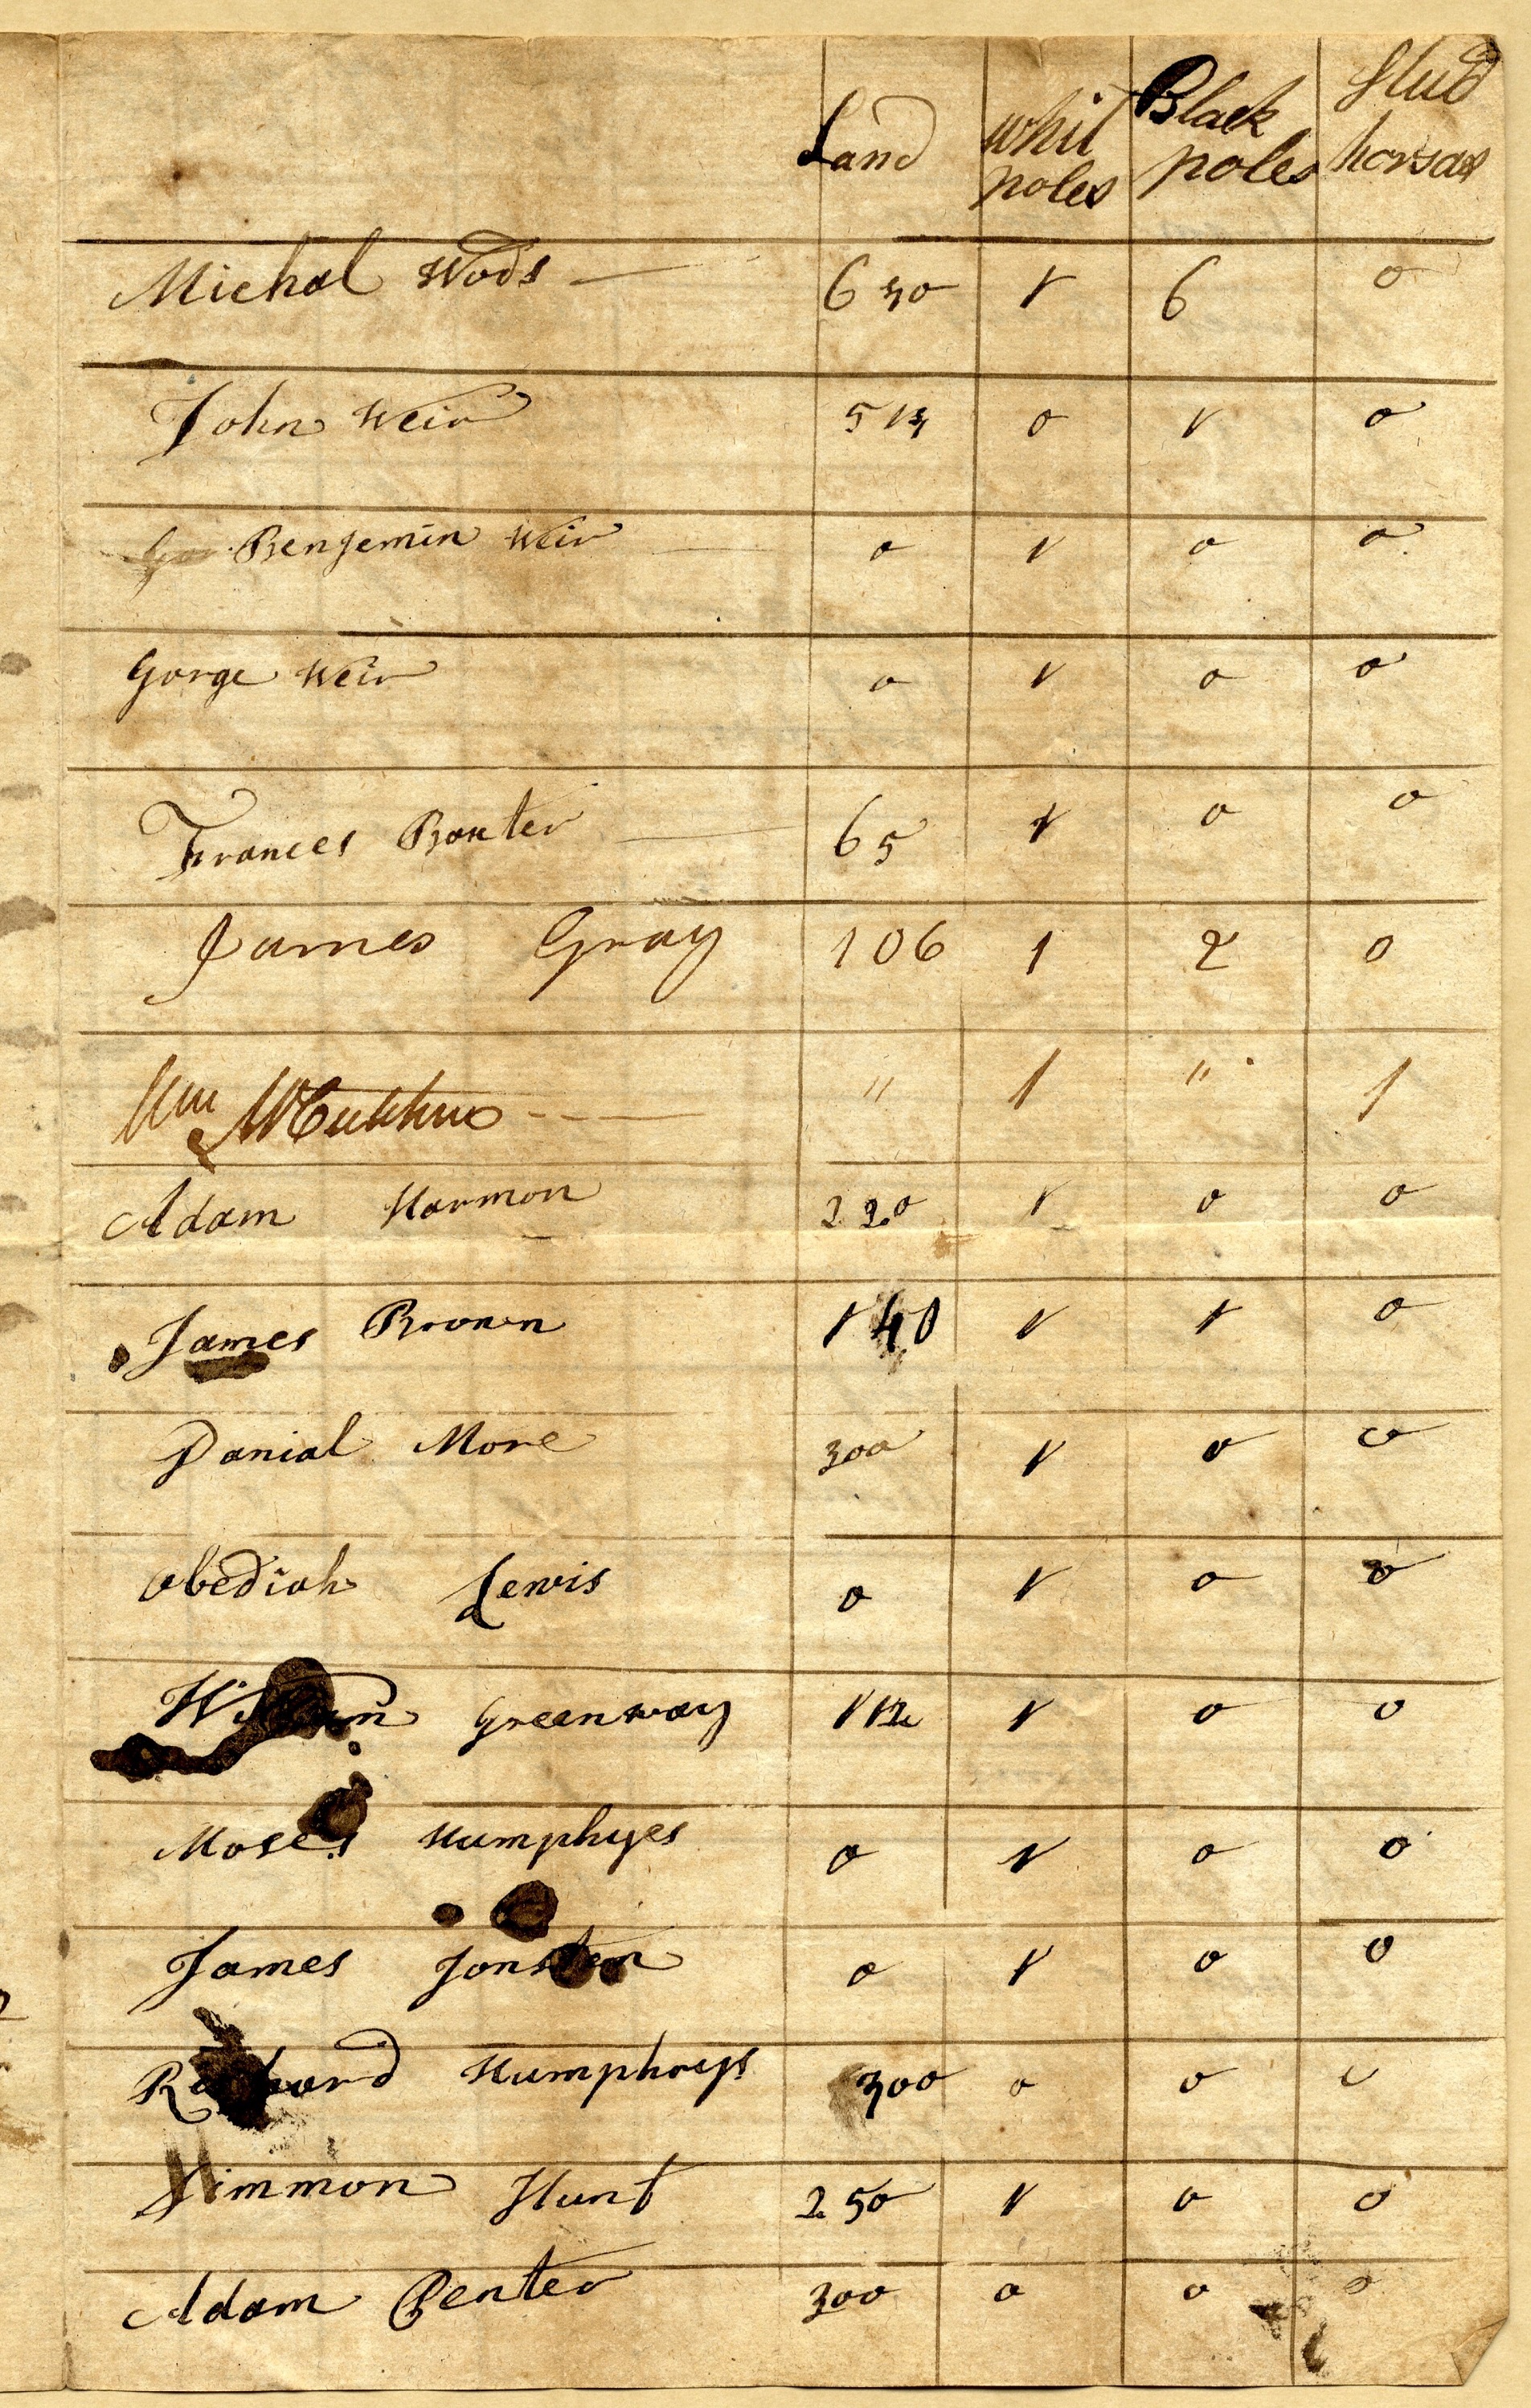 Land whit poles Black poles Stud horses
Michal Wods 630 1 6 0
John Weir 513 0 1 0
Benjemin Weir 0 1 0 0
Gorge Weir 0 1 0 0
Frances Baxter 65 1 0 0
James Gray 106 1 2 0
Wm " 1 " 1
Adam Harmon 220 1 0 0
James Brown 140 1 1 0
Danial More 300 1 0 0
Obediah Lewis 0 1 0 0
William Greenway 112 1 0 0
Moses Humphyes 0 1 0 0
James Jonsten 0 1 0 0
Richard Humphreys 300 0 0 0
Simmon Hunt 250 1 0 0
Adam Penter 300 0 0 0